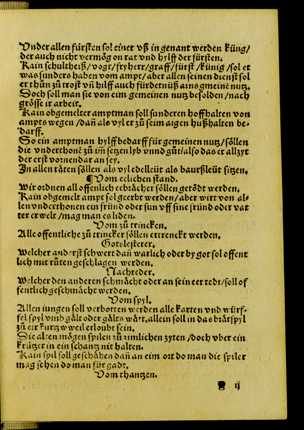 Under allen fürsten sol einer uß in genant werden küng/
der auch nicht vermög on rat vnd hylff der fürsten.
Kain schultheiß/vogt/fryherr/graff/fürst/künig/sol et
was sunders haben vom ampt/aber allen seinen dienst sol
er thůn zů trost vñ hilff auch fürdernüß ains gmeine nutz.
Doch soll man sie von eim gemeinen nutz besolden/nach
grösse ir arbeit.
Kain obgemelter amptman soll sunderen hoffhalten von
ampts wegen/dañ als vyl er zů seim aigen hußhalten be
darff.
So ein amptman hylff bedarff für gemeinen nutz/söllen
die vnderthonē zů im setzen lyb vnnd gůt/als das er allzyt
der erst vornendar an sey.
In allen räten sällen als vyl edelleüt als baurßleüt sitzen.
Vom eelichen stand.
Wir ordnen all offenlich eebrächer söllen getödt werden.
Kain obgemelt ampt sol geerbt werden/aber wirt von al
len vnderthonen ein fründ oder sun vff sine fründ oder vat
ter erwelt/mag man es liden.
Vom zů trincken.
Alle offentliche zů trincker söllen ertrenckt werden.
Gotslesterer.
Welcher anderst schwert dañ warlich oder by got sol offent
lich mit růten geschlagen werden.
Nachreder.
Welcher den anderen schmächt oder an sein eer redt/soll of
fentlich geschmächt werden.
Vom spyl.
Allen jungen soll verbotten werden alle karten vnd würf
fel spyl vmb gält oder gälts wärt/allein soll in das brätspyl
zů eir kurtzweil erloubt sein.
Die alten mögen spilen zů zimlichen zyten/doch vber ein
krützer in ein schantz nit halten.
Kain spil soll geschähen dañ an eim ort do man die spiler
mag sehen do man für gadt.
Vom thantzen.
ij